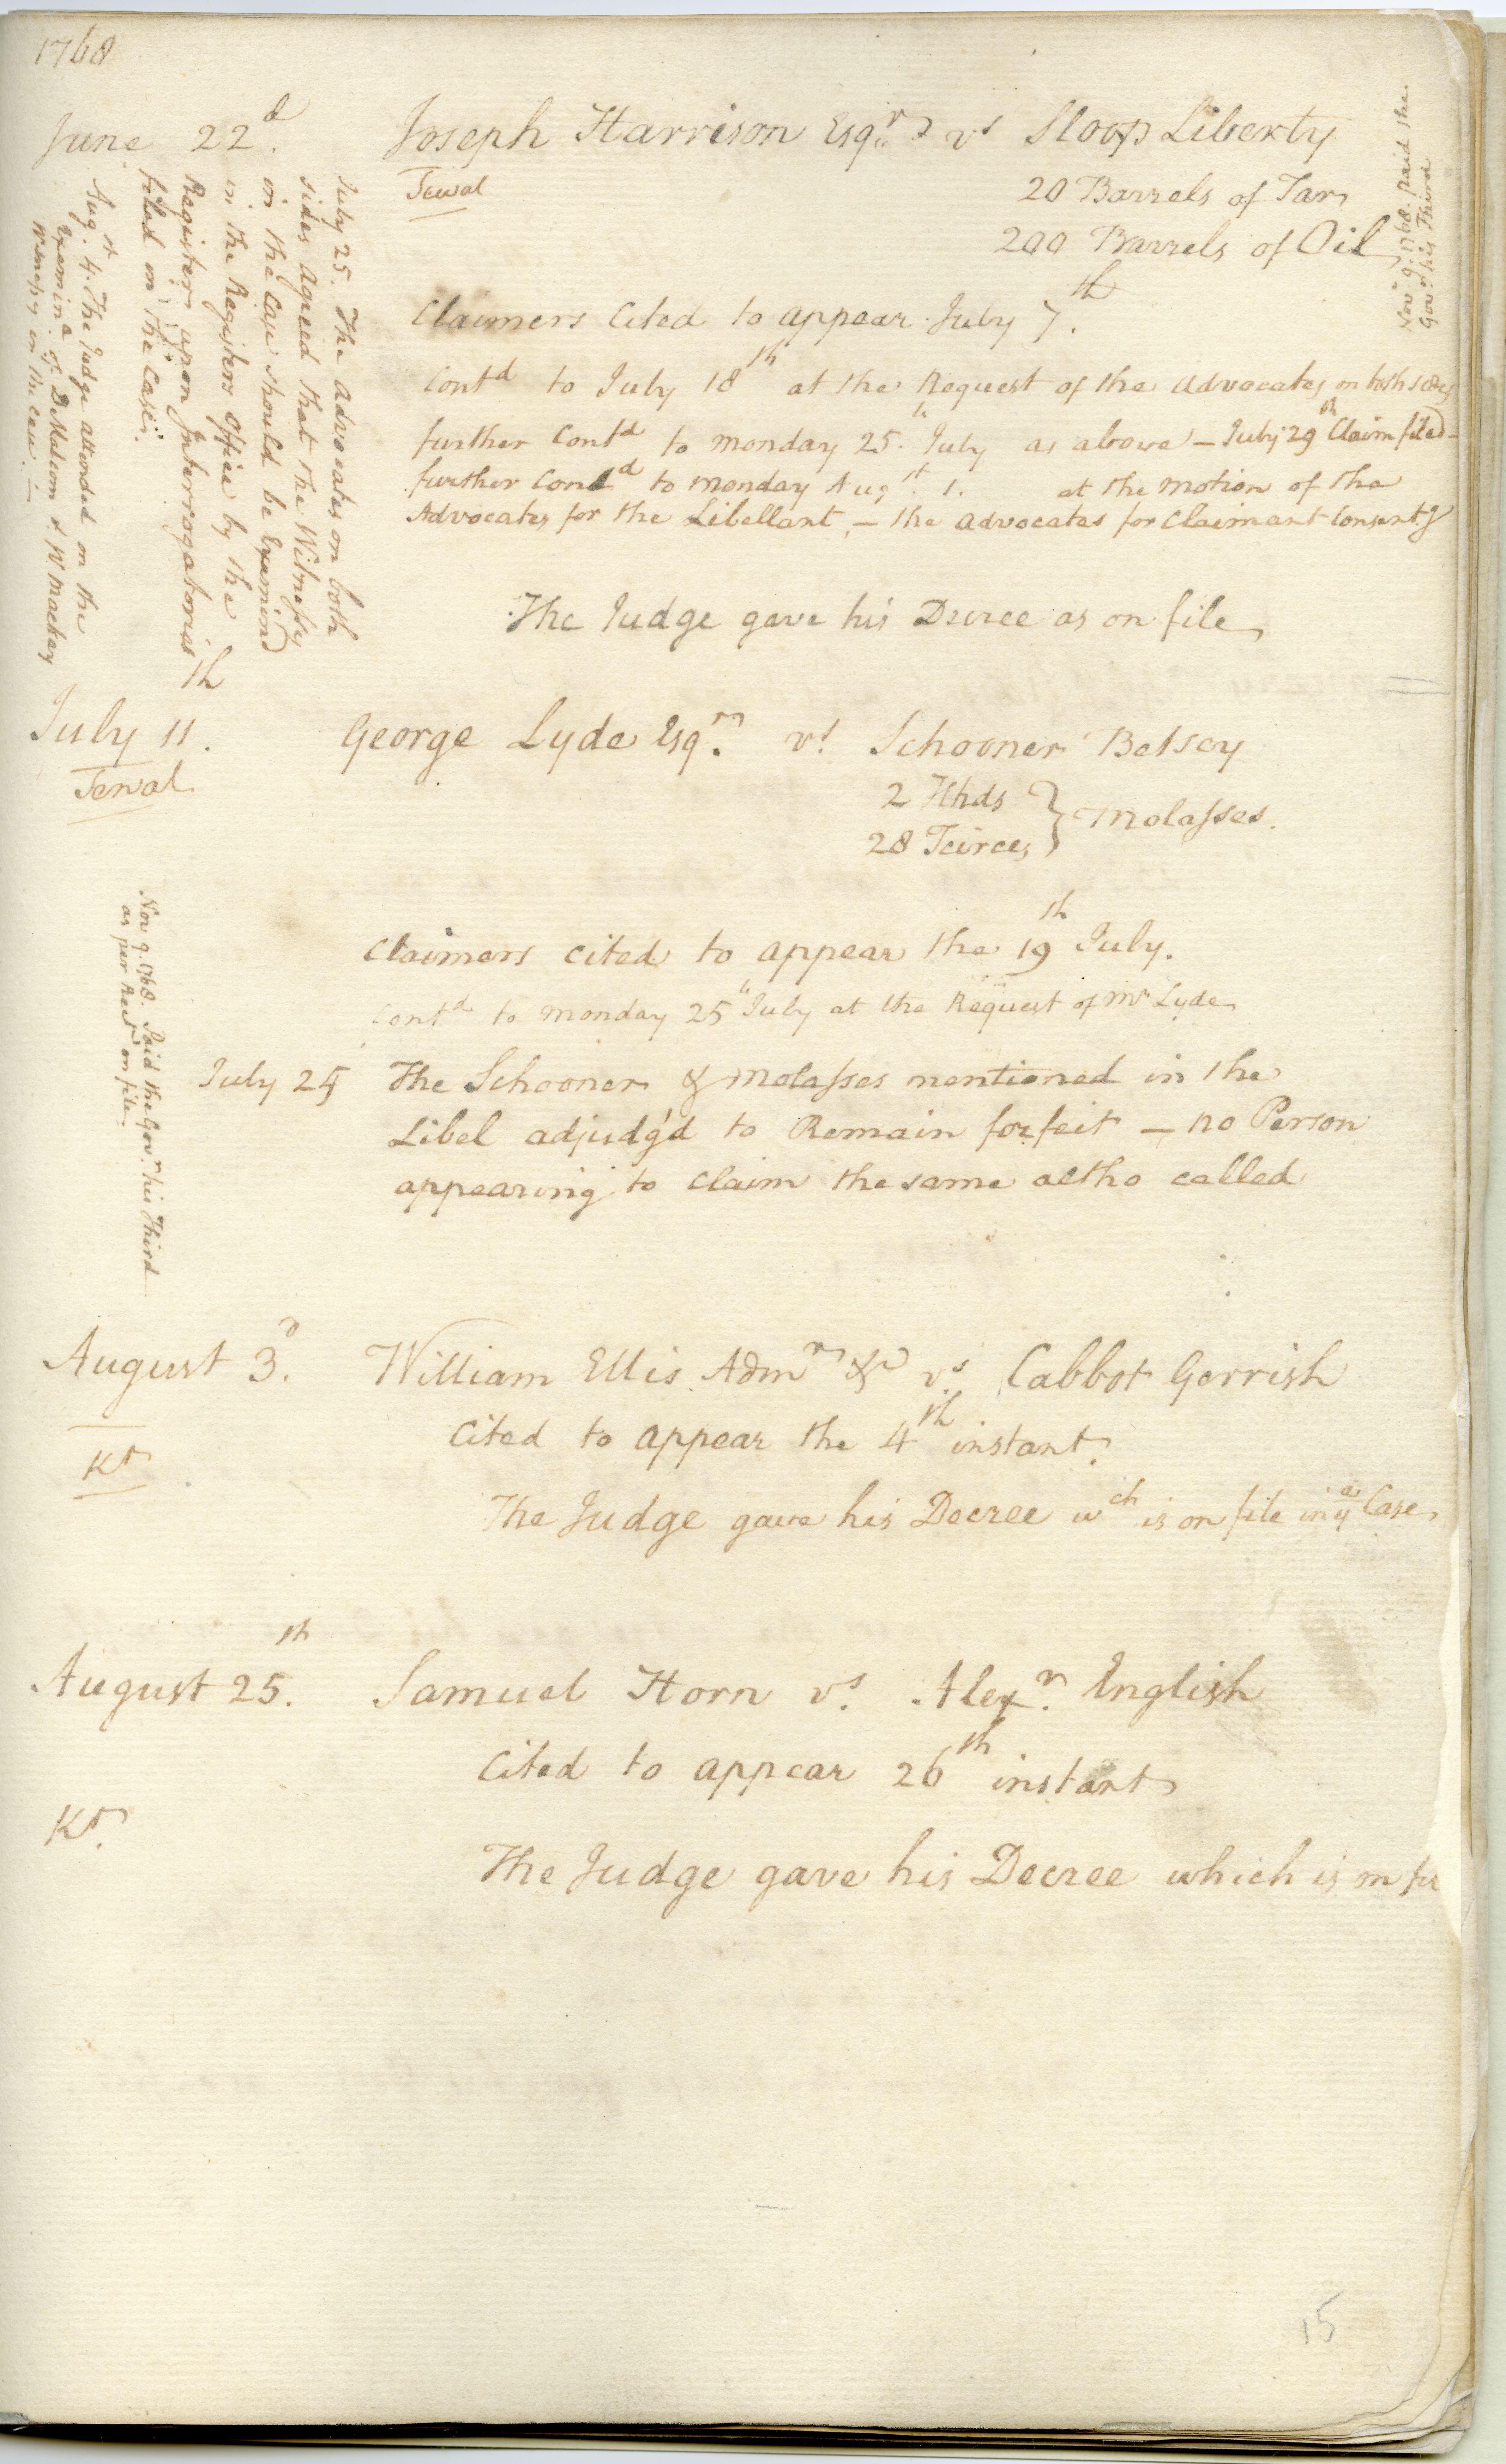 1768
June 22d.
Joseph Harrison Esqr. vs Sloop Liberty
Sewal
20 Barrels of Tar
200 Barrels of Oil
Novr. 9. 1768. paid the
Govr. his Third
Claimers Cited to appear July 7th.
Contd to July 18th at the Request of the Advocates on both sides
further Contd to monday 25.th July as above – July 29th Claim filed –
further Contd to monday Augst. 1. at the motion of the
Advocates for the Libellant, – the advocates for Claimant Consentg
July 25. The Advocates on both
sides Agreed that the Witnesses
in the Case should be Examined
in the Registers Office by the
Register upon Interrogatories
filed in the Case.
Augst. 4. The Judge attended on the
Examinn of D Malcom & W Mackay
Witnesses in the case. —
The Judge gave his Decree as on file
July 11th.
Sewal
George Lyde Esqr. vs. Schooner Betsey
2 Hhds
28 Teirces } Molasses.
Claimers cited to appear the 19th July.
Contd to monday 25th July at the Request of Mr Lyde
Nov. 9. 1768. Paid the Govr. his Third
as per Rect on file.
July 25 The Schooner & Molasses mentioned in the
Libel adjudg'd to Remain forfeit – no Person
appearing to Claim the same altho called
August 3d.
Kt
William Ellis Admr &c vs. Cabbot Gerrish
Cited to appear the 4th instant.
The Judge gave his Decree wch is on file in ye Case
August 25.th
Samuel Horn vs. Alexr. Inglish
Cited to appear 26th instant
Kt.
The Judge gave his Decree which is
15